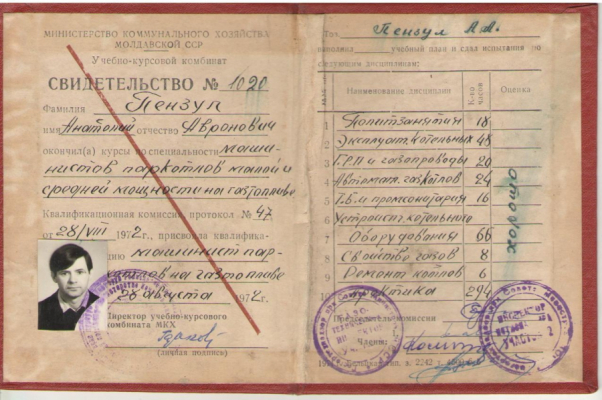 МИНИСТЕРСТВО КОММУНАЛЬНОГО ХОЗЯЙСТВА
МОЛДАВСКОЙ ССР
Учебно-курсовой комбинат
СВИДЕТЕЛЬСТВО № 1020
Фамилия Пензул
имя Анатолий отчество Авронович
окончил(а) курсы по специальности маши-
нистов паркотлов малой и
средней мощности на газтопливе
Квалификационная комиссия, протокол № 47
от 28/VIII 1972г., присвоила квалифика-
цию машинист пар-
котлов на газтопливе
28 августа 1972г.
Директор учебно-курсового
комбината МКХ
(личная подпись)
Тов. Пензул А.А.
выполнил учебный план и сдал испытания по
следующим дисциплинам:
Наименование дисциплин К-во часов Оценка
1 Политзанятия 18
2 Эксплуат. котельных 48
3 Г.Р.П и газопроводы 20
4 Автомат. газкотлов 24
5 Т.Б. и промсанитария 16
6 Устройст. котельного
7 Оборудования 66
8 Свойства газов 8
9 Ремонт котлов 6
10 294
хорошо
Председатель комиссии
Члены: